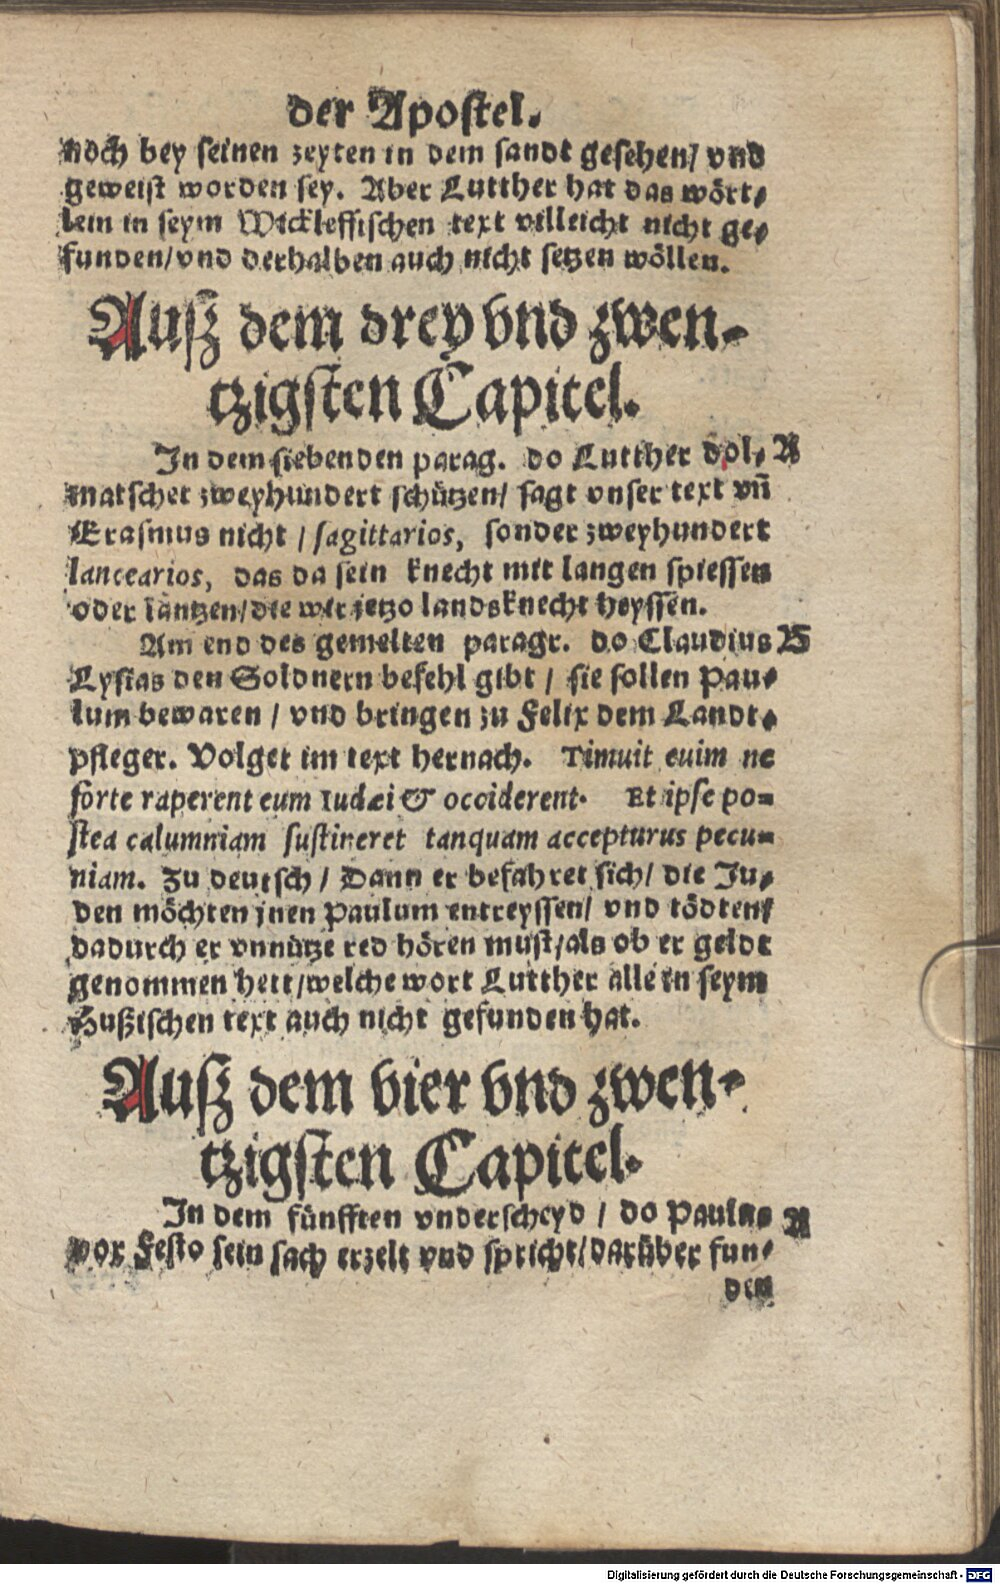 der Apostel.
noch bey seinen zeyten in dem sandt gesehen/ vnd
geweist worden sey. Aber Lutther hat das wört⸗
lein in seym Wickleffischen text villeicht nicht ge⸗
funden/vnd derhalben auch nicht setzen wöllen.
Ausz dem drey vnd zwen⸗
tzigsten Capitel.
In dem siebenden parag. do Lutther dol⸗ A
matschet zweyhundert schützen/ sagt vnser text vn̄
Erasmus nicht / sagittarios, sonder zweyhundert
lancearios, das da sein knecht mit langen spiessen
oder läntzen/die wir jetzo landsknecht heyssen.
Am end des gemelten paragr. do Claudius B
Lysias den Soldnern befehl gibt / sie sollen Pau⸗
lum bewaren / vnd bringen zu Felix dem Landt⸗
pfleger. Volget im text hernach. Timuit euim ne
forte raperent eum Iudæi & occiderent. Et ipse po⸗
stea calumniam sustineret tanquam accepturus pecu⸗
niam. Zu deutsch / Dann er befahret sich/ die Ju⸗
den möchten jnen Paulum entreyssen/ vnd tödten/
dadurch er vnnütze red hören must/als ob er geldt
genommen hett/welche wort Lutther alle in seym
Hußischen text auch nicht gefunden hat.
Ausz dem vier vnd zwen⸗
tzigsten Capitel.
In dem fünfften vnderscheyd / do Paulus A
vor Festo sein sach erzelt vnd spricht/darüber fun⸗
den
Digitalisierung gefördert durch die Deutsche Forschungsgemeinschaft - DFG